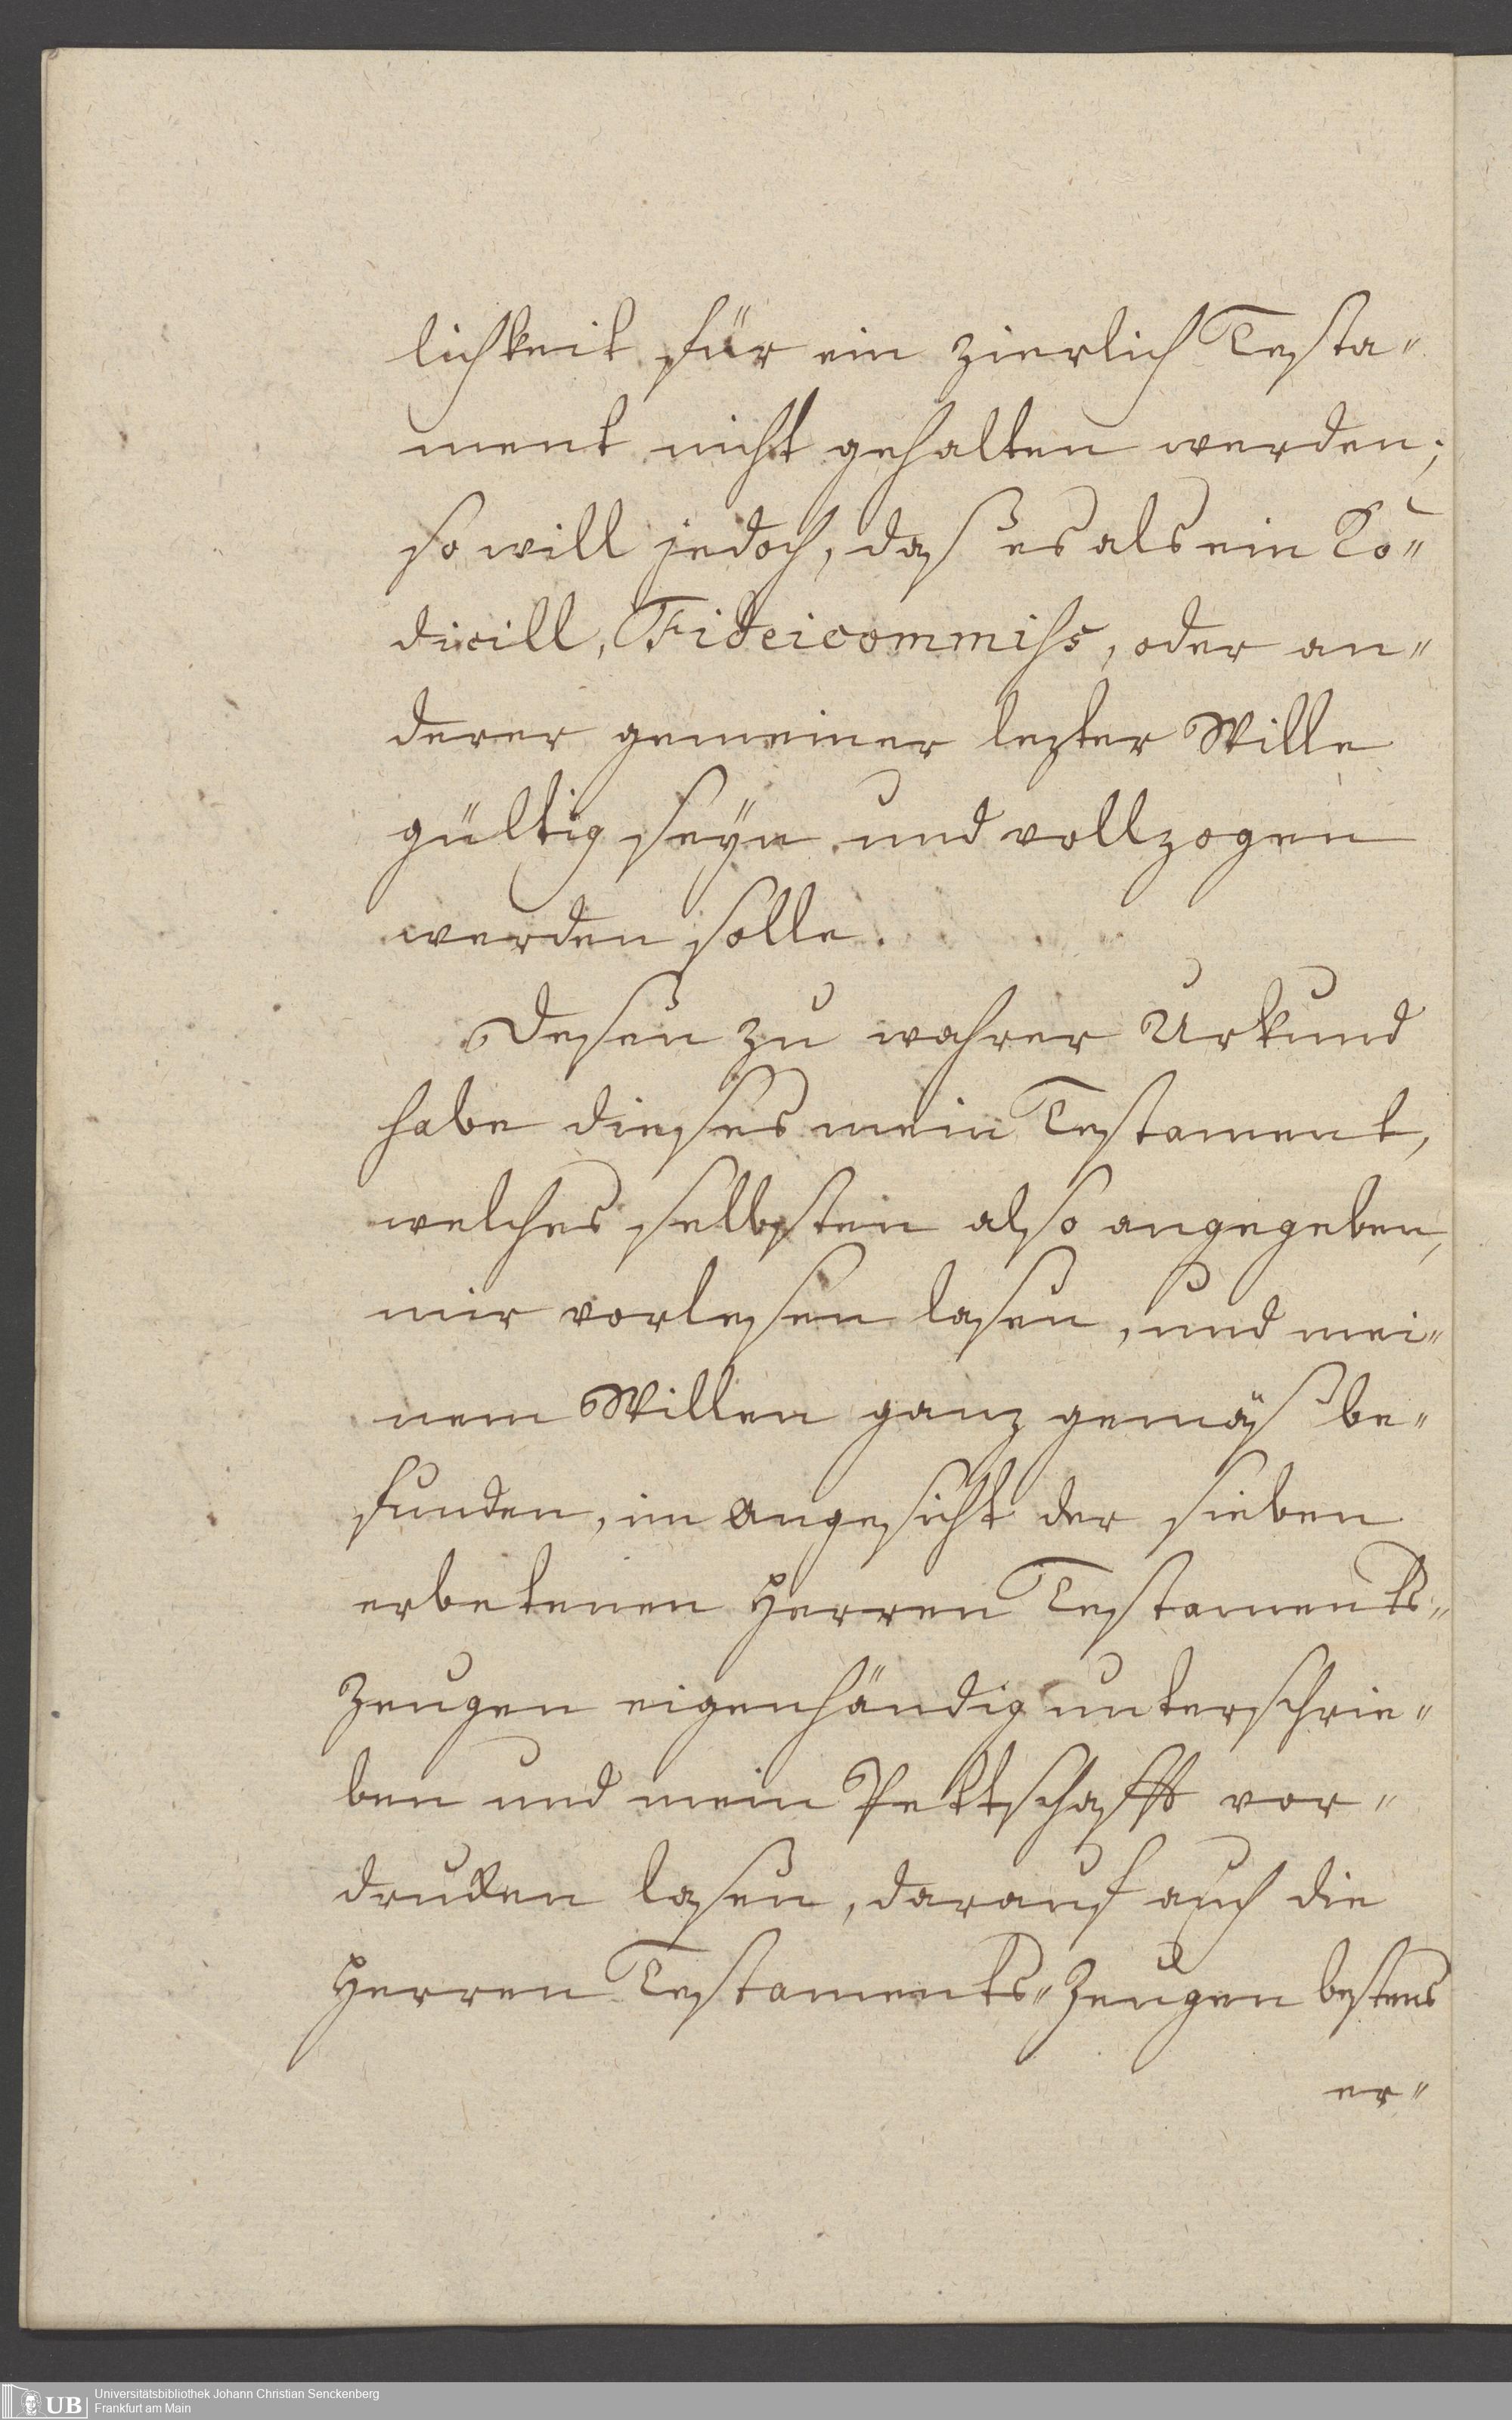 lichkeit für ein zierlich Testa„
ment nicht gehalten werden;
so will jedoch, daß es als ein Co„
dicill, Fideicommiss, oder an„
derer gemeiner lezter Wille
gültig seÿn und vollzogen
werden solle.
Deßen zu wahrer Urkund
habe dieses mein Testament,
welches selbsten also angegeben,
mir vorlesen laßen, und mei„
nem Willen ganz gemäß be„
funden, im Angesicht der sieben
erbetenen Herren Testaments„
Zeugen eigenhändig unterschrie„
ben und mein Pettschafft vor„
drucken laßen, darauf auch die
Herren Testaments„Zeugen bestens
er„
UB
Universitätsbibliothek Johann Christian Senckenberg
Frankfurt am Main